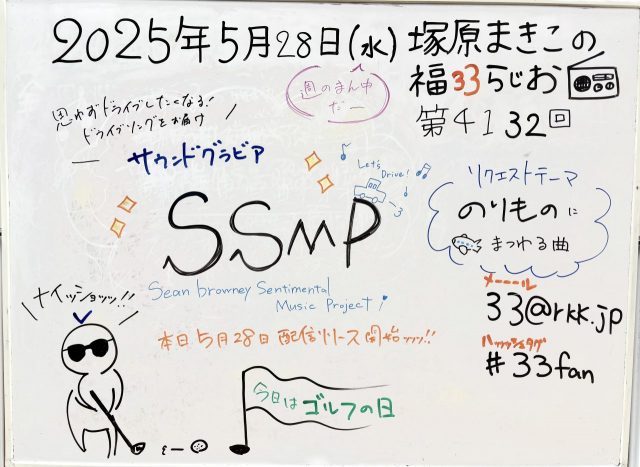 2025年5月28日(水) 塚原まきこの
福33らじお
第4132回
週のまん中
だー
思わずドライブしたくなる!
ドライブソングをお届け
サウンドグラビア
Let's
Drive!
SSMP
Sean browney Sentimental
Music Project!
本日5月28日配信リリース開始ッッ!!
リクエストテーマ
のりものに
まつわる曲
メーーール
33@rkk.jp
ハッッシュタグ
#33fan
ナイッショッッ!!
今日はゴルフの日